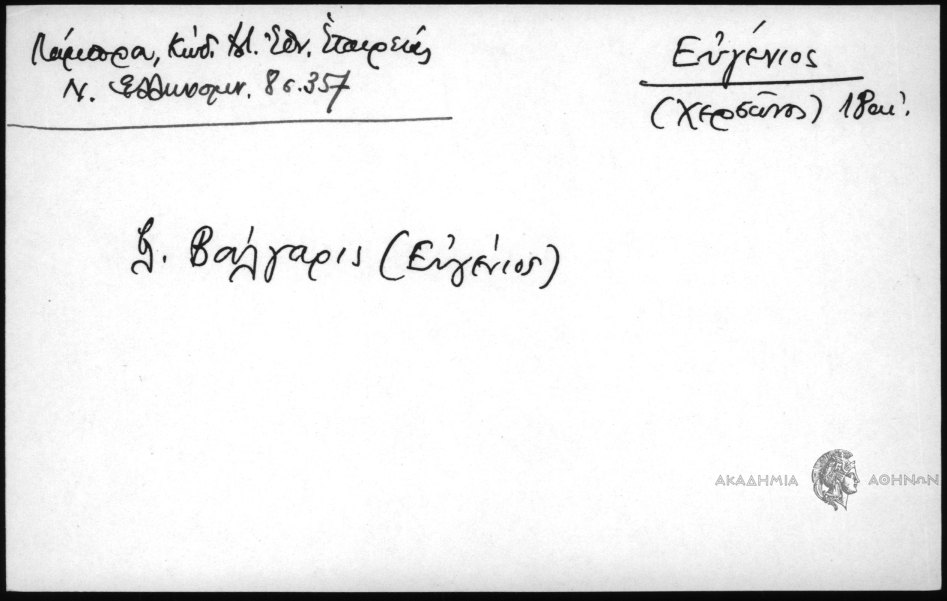 Λάμπρου, Κώδ. Ἱστ. Ἐθν. Ἑταιρείας
Ν. Ἑλληνομν. 8 σ. 357
Εὐγένιος
(Χερσῶνος) 18 αἰ.
Β. Βούλγαρις (Εὐγένιος)
ΑΚΑΔΗΜΙΑ ΑΘΗΝΩΝ